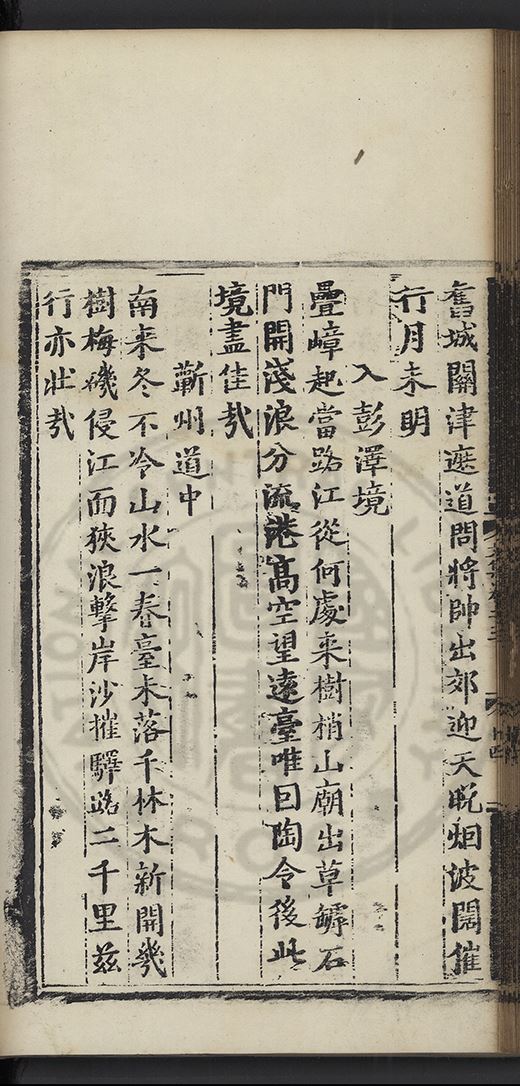 舊城關津遮道問將帥出郊迎天晚烟波闊催
行月未明
入彭澤境
疊嶂起當路江從何處来樹梢山廟出草罅石
門開淺浪分流港高空望遠臺唯曰陶令後此
境盡佳哉
蘄州道中
南来冬不冷山水一春臺未落千林木新開幾
樹梅磯侵江而狹浪擊岸沙摧驛路二千里茲
行亦壯哉